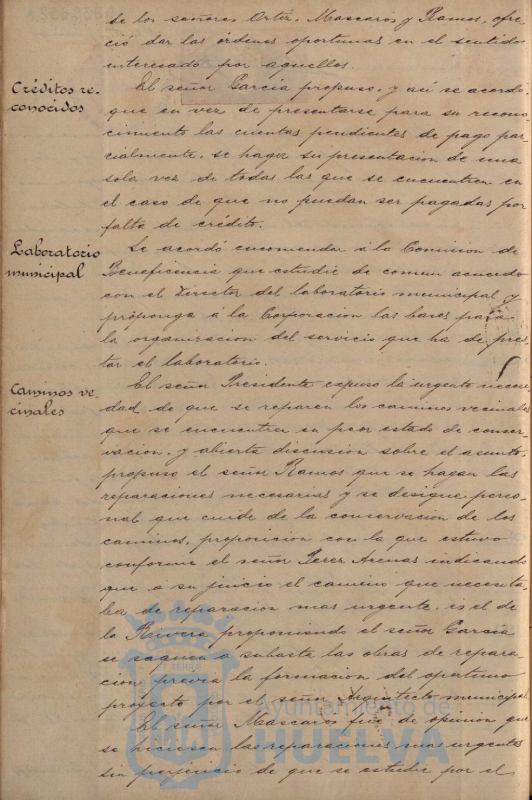 de los señores Ortiz, Mascarós y Ramos, ofre-
ció dar las órdenes oportunas en el sentido
interesado por aquellos.
Créditos re-
conocidos
El señor García propuso, y así se acordó
que en vez de presentarse para su recono-
cimiento las cuentas pendientes de pago par-
cialmente, se haga su presentación de una
sola vez de todas las que se encuentren en
el caso de que no puedan ser pagadas por
falta de crédito.
Laboratorio
municipal
Se acordó encomendar á la Comision de
Beneficencia que estudie de comun acuerdo
con el Director del laboratorio municipal y
próponga á la Corporación las bases para
la organizacion del servicio que ha de pres-
tar el laboratorio.
Caminos ve-
cinales
El señor Presidente expuso la urgente necesi-
dad de que se reparen los caminos vecinales
que se encuentren en peor estado de conser-
vacion, y abierta discusión sobre el asunto,
propuso el señor Ramos que se hagan las
reparaciones necesarias y se designe perso-
nal que cuide de la conservacion de los
caminos, proposición con la que estuvo
conforme el señor Perez Arenas indicando
que á su juicio el camino que necesita-
ba de reparacion mas urgente, es el de
la Rivera, proponiendo el señor García
se saquen a subasta las obras de repara-
cion, previa la formacion del oportuno
proyecto por el señor Arquitecto municipal
El señor Mascarós fué de opinión que
se hiciesen las reparaciones mas urgentes
sin perjuicio de que se estudie por el
Ayuntamiento de
HUELVA